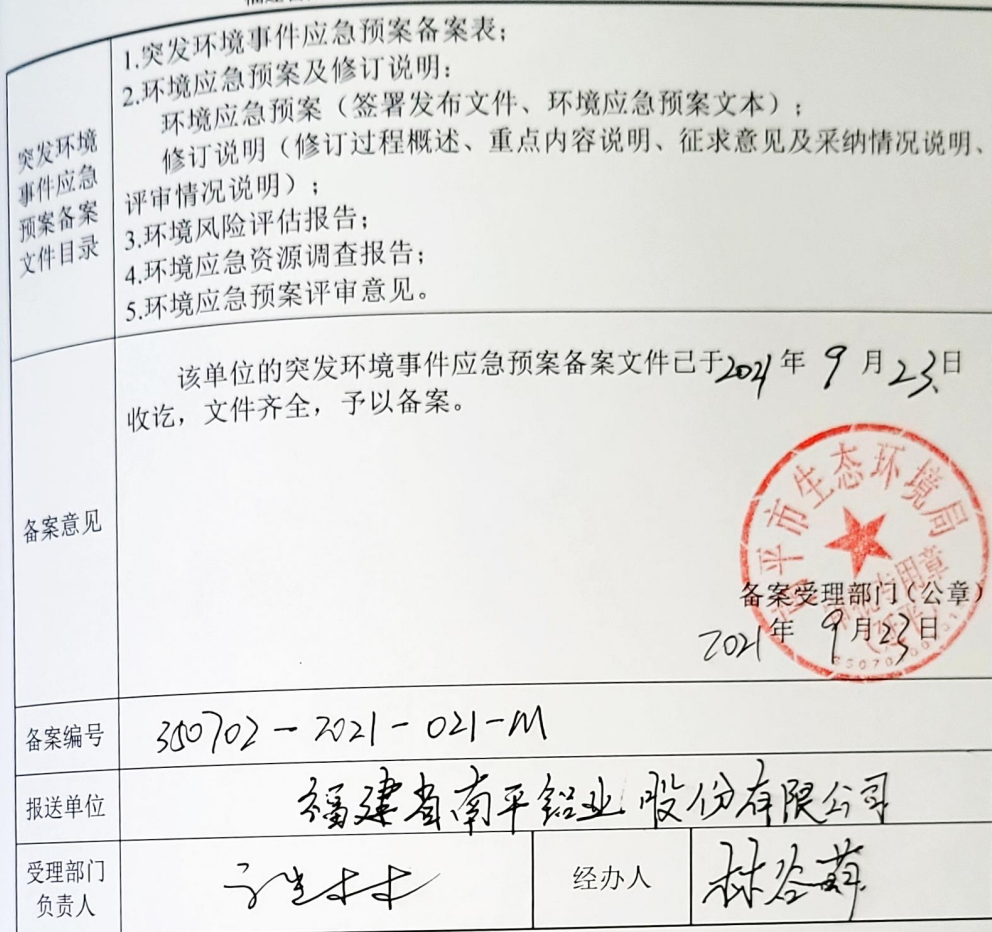 突发环境
事件应急
预案备案
文件目录
1.突发环境事件应急预案备案表；
2.环境应急预案及修订说明：
环境应急预案（签署发布文件、环境应急预案文本）；
修订说明（修订过程概述、重点内容说明、征求意见及采纳情况说明、
评审情况说明）；
3.环境风险评估报告；
4.环境应急资源调查报告；
5.环境应急预案评审意见。
备案意见
该单位的突发环境事件应急预案备案文件已于2021年 9 月 23日
收讫，文件齐全，予以备案。
南平市生态环境局
备案受理部门（公章）
2021年 9月23日
备案编号
350702-2021-021-M
报送单位
福建省南平铝业股份有限公司
受理部门
负责人
经办人